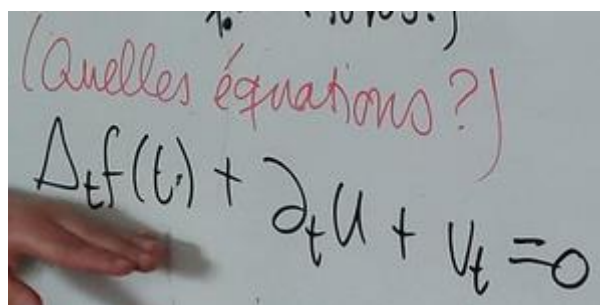 (Quelles équations?)
Δₜf(t) + ∂ₜu + vₜ = 0